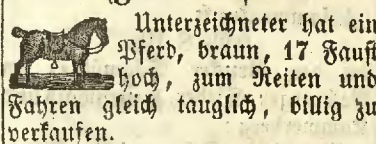 Unterzeichneter hat ein
Pferd, braun, 17 Faust
hoch, zum Reiten und
Fahren gleich tauglich, billig zu
verkaufen.